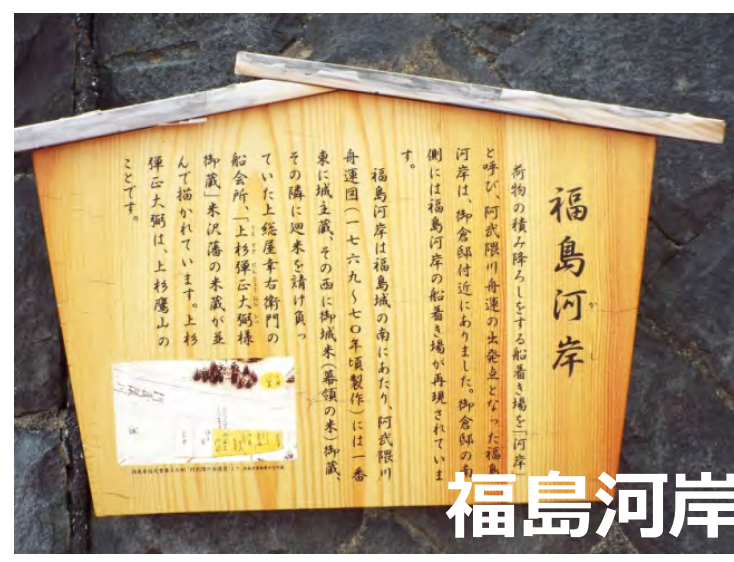 福島河岸
かし
荷物の積み降ろしをする船着き場を「河岸」
と呼び、阿武隈川舟運の出発点となった福島
河岸は、御倉邸付近にありました。御倉邸の南
側には福島河岸の船着き場が再現されていま
す。
福島河岸は福島城の南にあたり、阿武隈川
舟運図(一七六九〜七〇年頃製作)には一番
東に城主蔵、その西に御城米(幕領の米)御蔵、
その隣に廻米を請け負っ
ていた上総屋幸右衛門の
船会所、「上杉弾正大弼様
御蔵」米沢藩の米蔵が並
んで描かれています。上杉
弾正大弼は、上杉鷹山の
ことです。
福島河岸